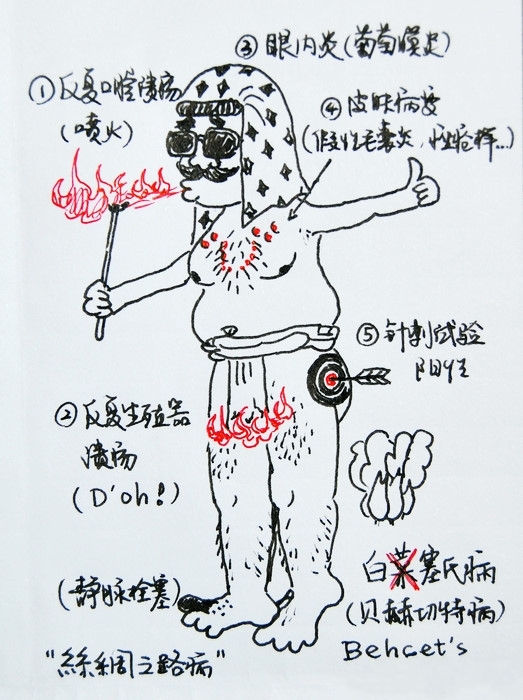 ③ 眼内炎(葡萄膜炎)
① 反复口腔溃疡
(喷火)
④ 皮肤病变
(假性毛囊炎,痤疮样...)
⑤ 针刺试验
阳性
② 反复生殖器
溃疡
(D'oh!)
白菜塞氏病
(静脉栓塞)
(贝赫切特病)
Behcet's
"絲綢之路病"